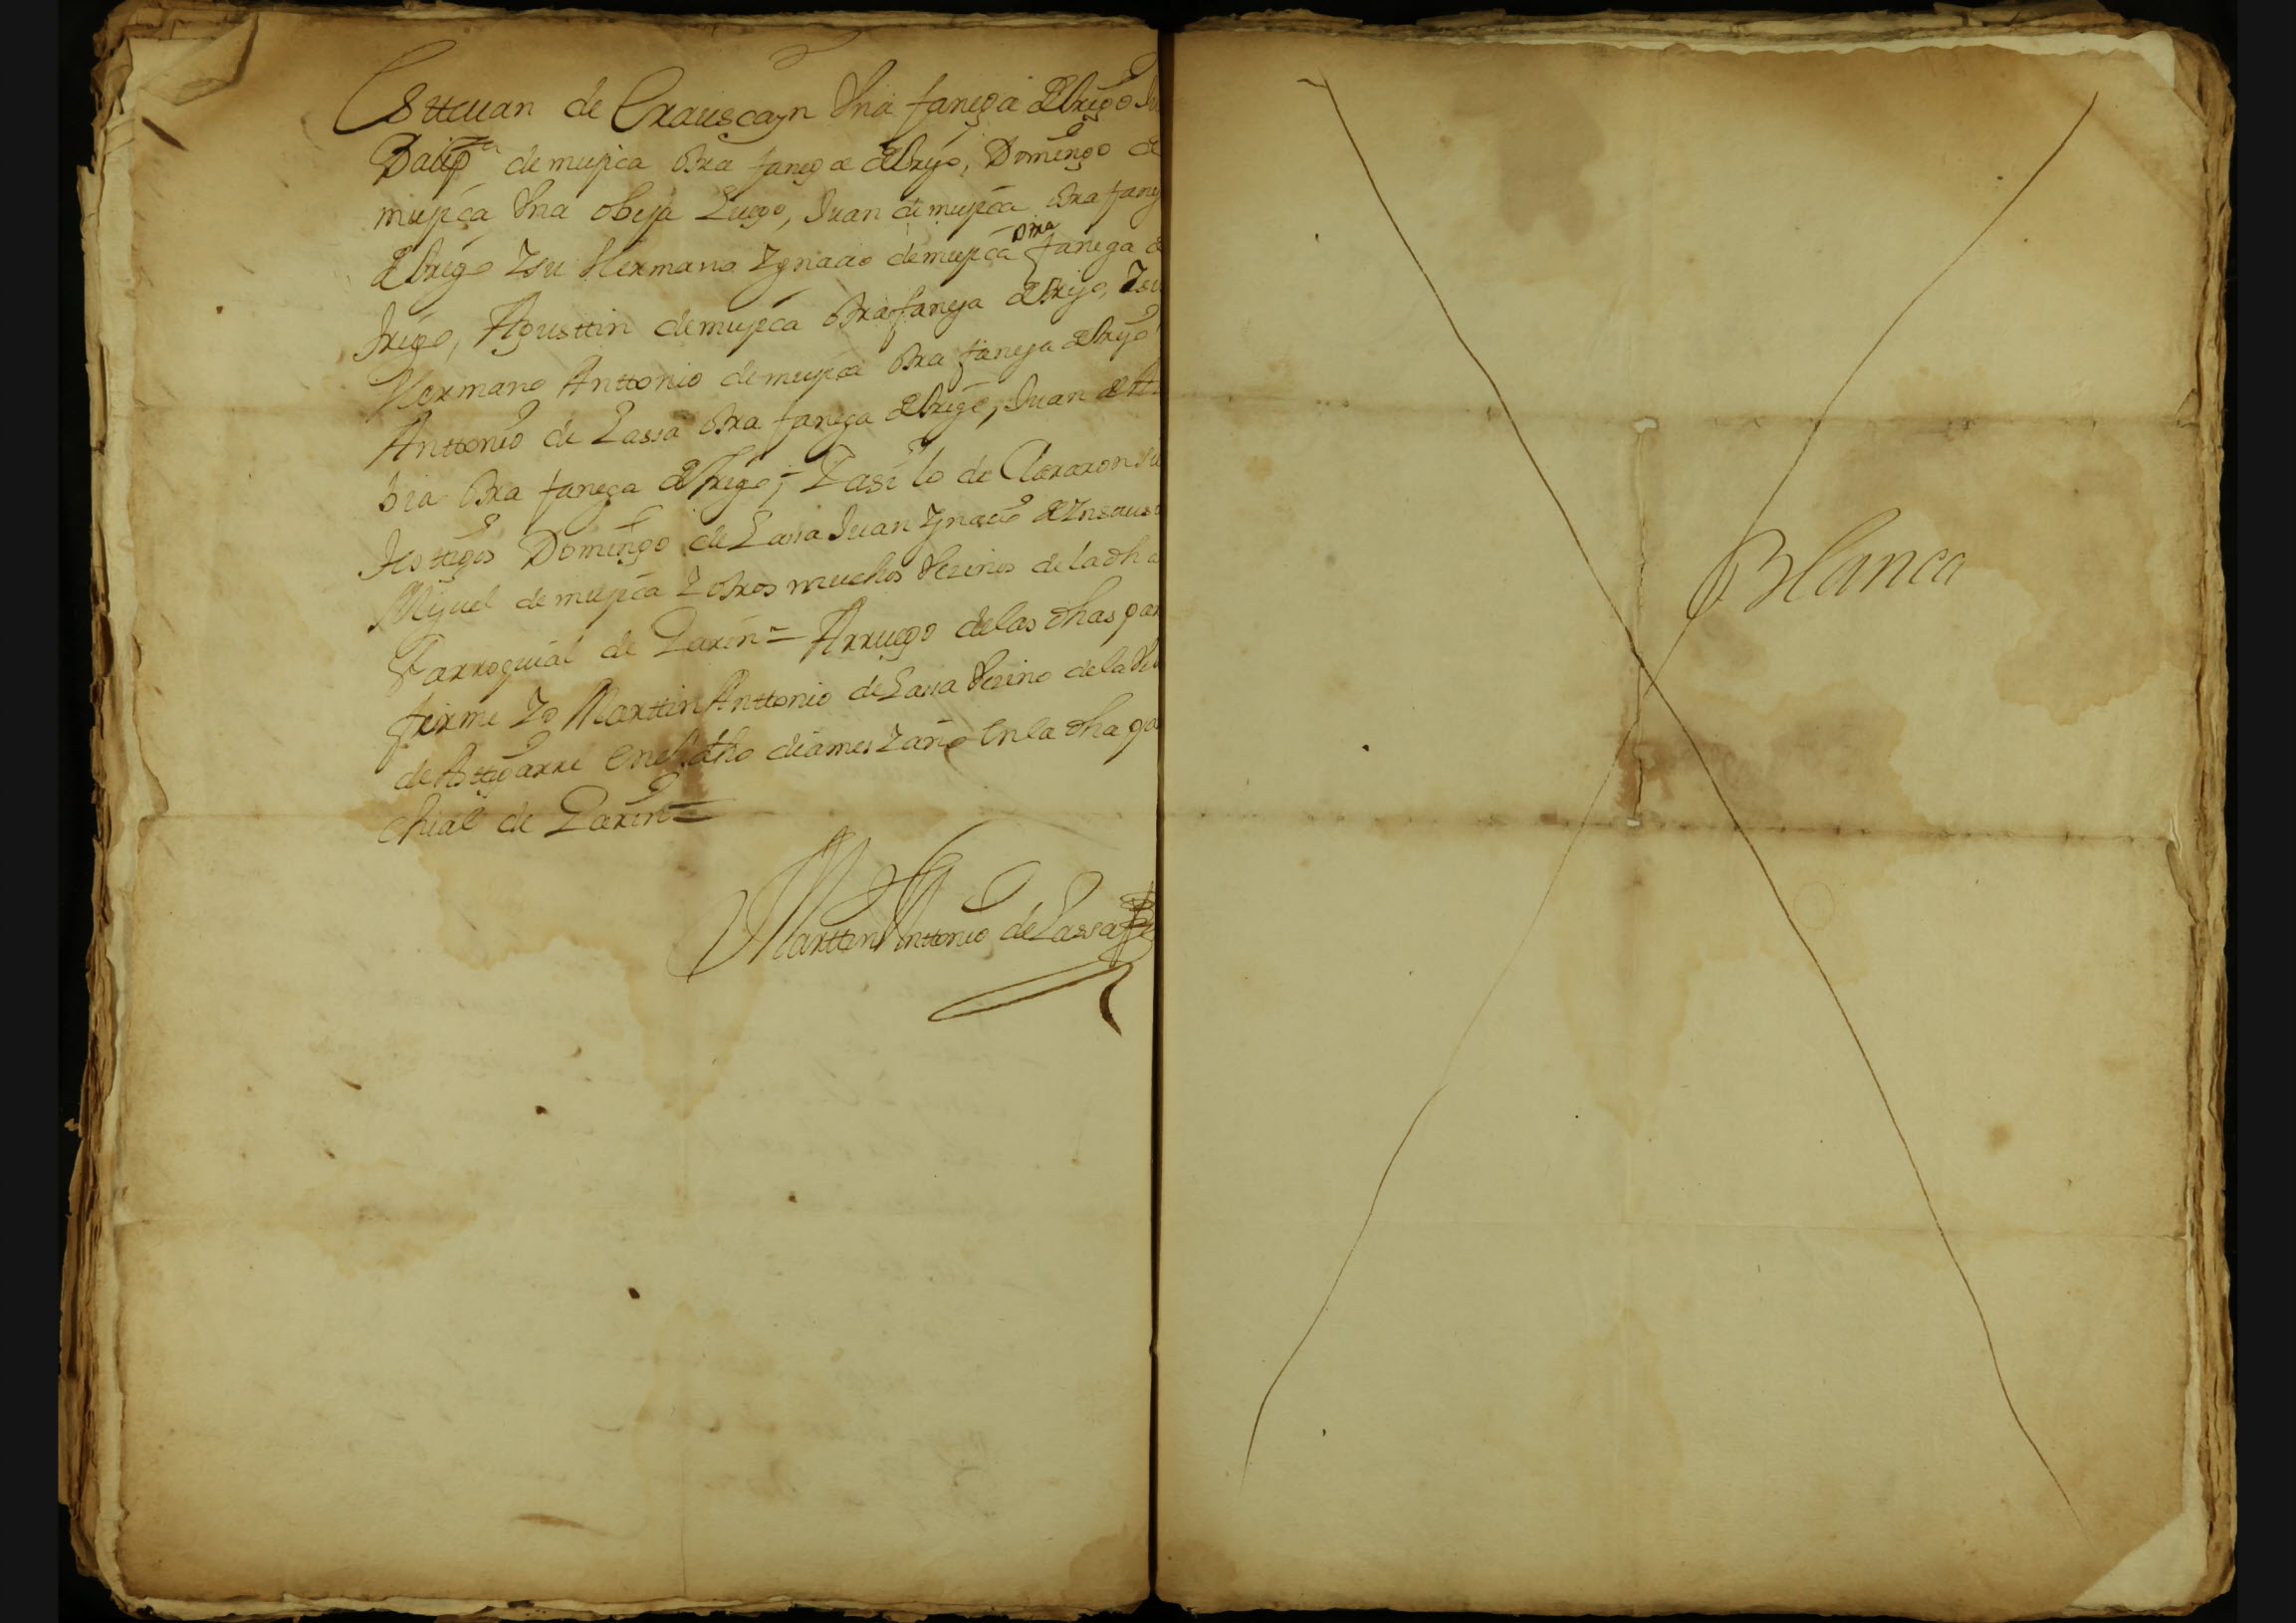 Esttevan de Erauscayn Una fanega de trigo Ju
Baup.ta de mujica otra fanega de trigo, Domingo de
mujica Una obeja Luego, Juan de mujica otra faneg
de trigo Y su Hermano Ygnacio de mujica otra fanega de
trigo, Agusttin de mujica otra fanega de trigo, Y su
Hermano Anttonio de mujica otra fanega de trigo
Anttonio de Lassa otra fanega de trigo, Juan de
bia otra fanega de trigo, = Y asi lo de Clararon si
testigos Domingo de Lassa Juan Ygnacio de Insaus
Miguel de mujica Y otros muchos Vezinos de la dha
Parroquial de Zarin = A rruego de las dhas par
firme Yo Marttin Anttonio de Lassa Vezino de la Vi
de Asttigarre en el dho dia mes Y año En la dha pa
chial de Zarin =
Marttin Anttonio de Lassa
Blanca